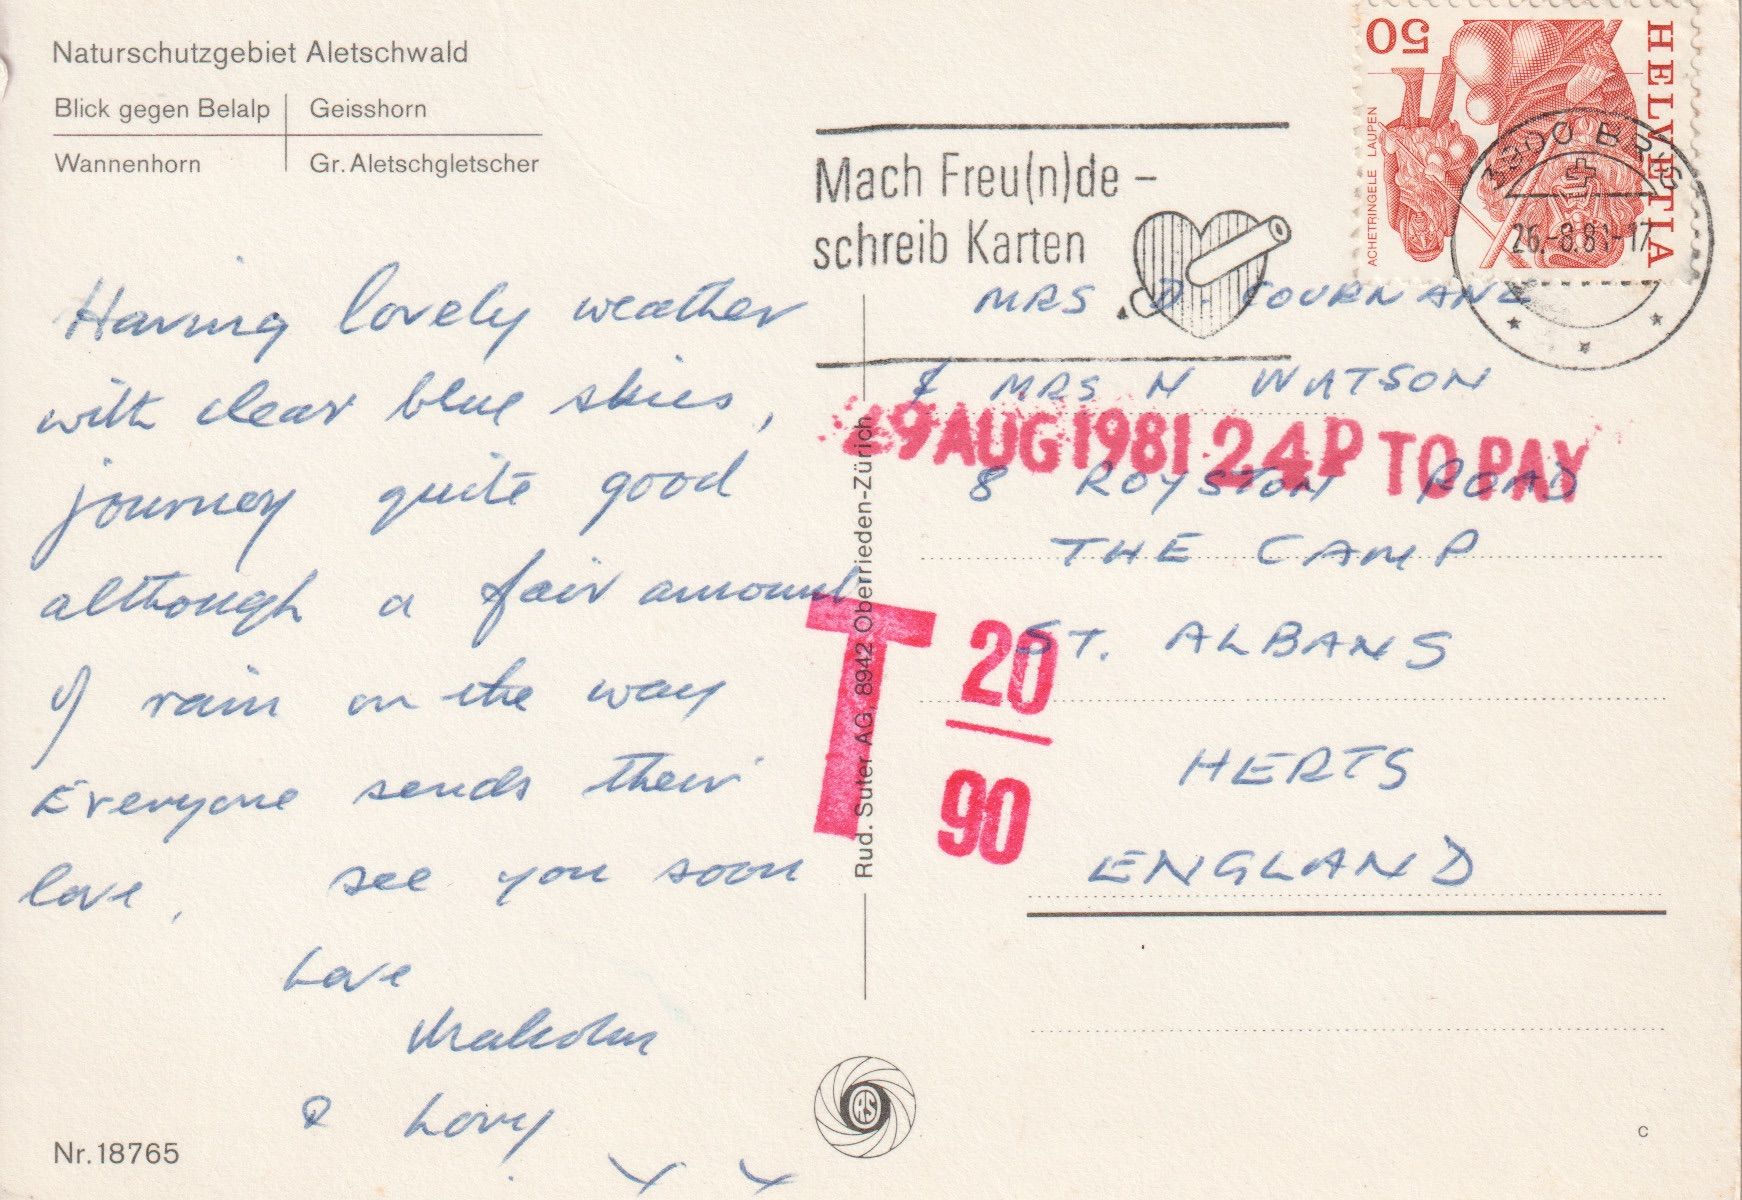 Naturschutzgebiet Aletschwald
Blick gegen Belalp | Geisshorn
Wannenhorn | Gr. Aletschgletscher
Mach Freu(n)de –
schreib Karten
50
HELVETIA
ACHETRINGELE LAUPEN
3900 BRIG
26.-8.81-17
Having lovely weather
with clear blue skies,
journey quite good
although a fair amount
of rain on the way
Everyone sends their
love, see you soon
Love
Malcolm
&
x x
MRS D.
& MRS N WATSON
8 ROYSTON ROAD
THE CAMP
ST. ALBANS
HERTS
ENGLAND
29 AUG 1981 24P TO PAY
T 20
90
Rud. Suter AG, 8942 Oberrieden-Zürich
RS
Nr. 18765
c